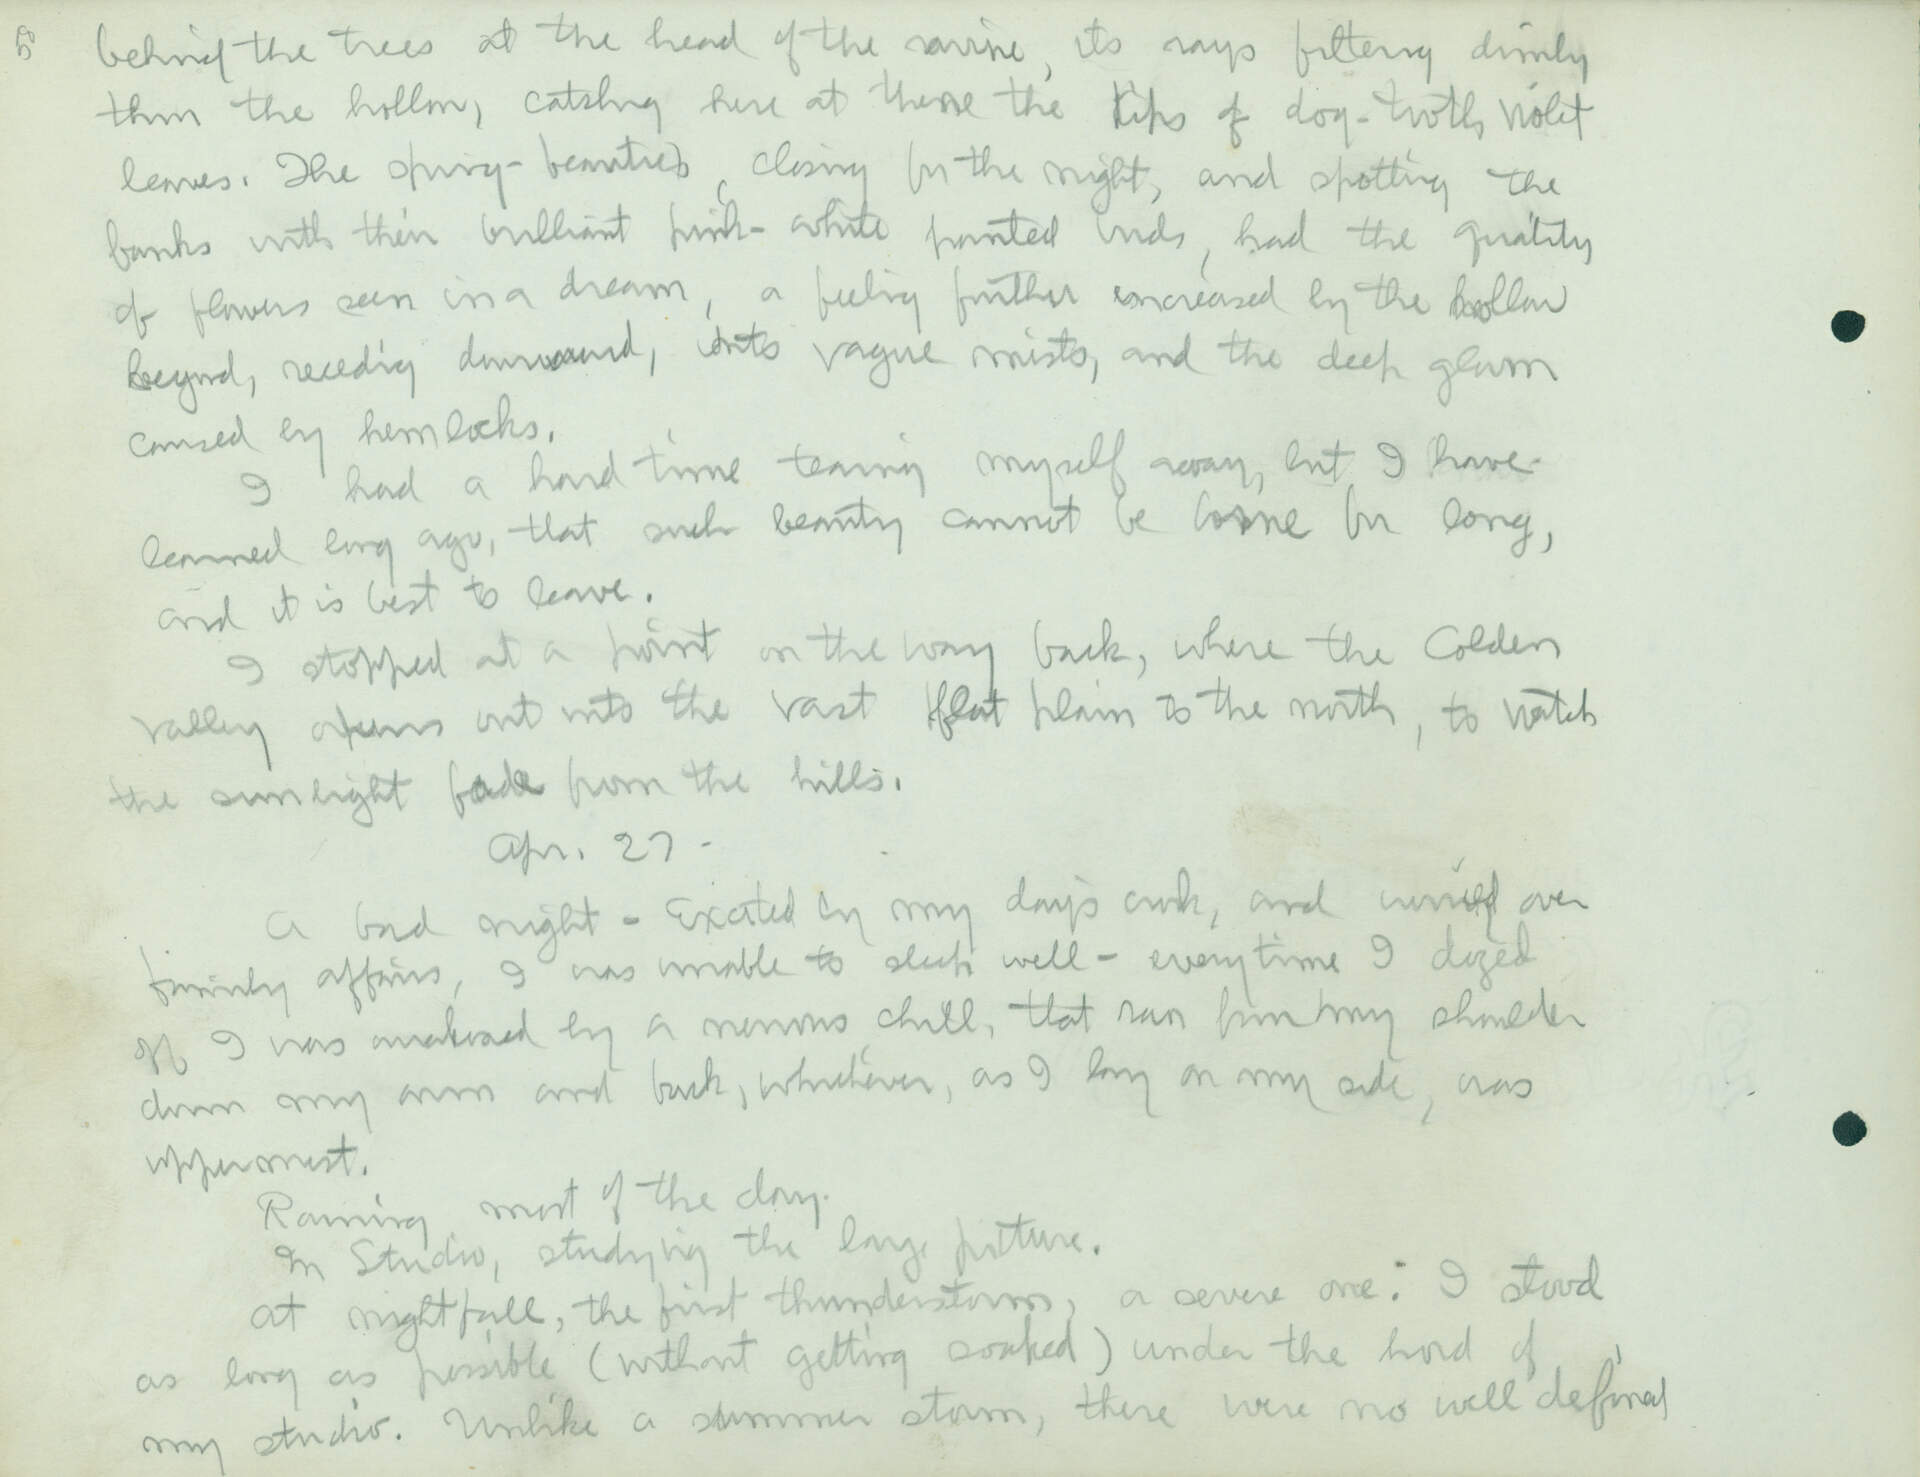 58
behind the trees at the head of the ravine, its rays filtering dimly
thru the hollow, catching here at there the tips of dog-tooth violet
leaves. The spring-beauties, closing for the night, and spotting the
banks with their brilliant pink-white pointed buds, had the quality
of flowers seen in a dream, a feeling further increased by the hollow
beyond, receding downward, into vague mists, and the deep gloom
caused by hemlocks.
I had a hard time tearing myself away, but I have
learned long ago, that such beauty cannot be borne for long,
and it is best to leave.
I stopped at a point on the way back, where the Colden
valley opens out into the vast flat plain to the north, to watch
the sunlight fade from the hills.
Apr. 27 -
A bad night - Excited by my day's work, and worried over
family affairs, I was unable to sleep well - everytime I dozed
off I was awakened by a nervous chill, that ran from my shoulder
down my arm and back, whichever, as I lay on my side, was
uppermost.
Raining most of the day.
In Studio, studying the large picture.
At nightfall, the first thunderstorm, a severe one: I stood
as long as possible (without getting soaked) under the hood of
my studio. Unlike a summer storm, there were no well defined